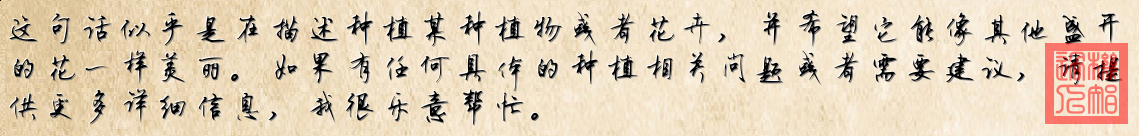 这句话似乎是在描述种植某种植物或者花卉，并希望它能像其他盛开
的花一样美丽。如果有任何具体的种植相关问题或者需要建议，请提
供更多详细信息，我很乐意帮忙。